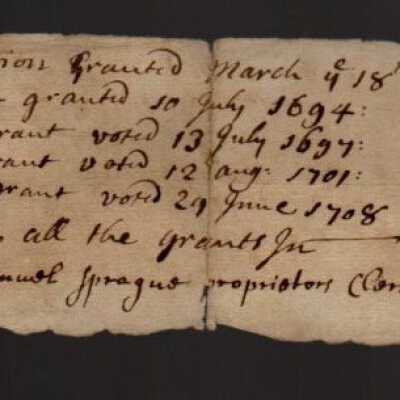 ion Granted March yᵉ 18
granted 10 July 1694:
rant voted 13 July 1697:
rant voted 12 aug: 1701:
rant voted 29 June 1708
all the grants In
muel Sprague proprietors Cler